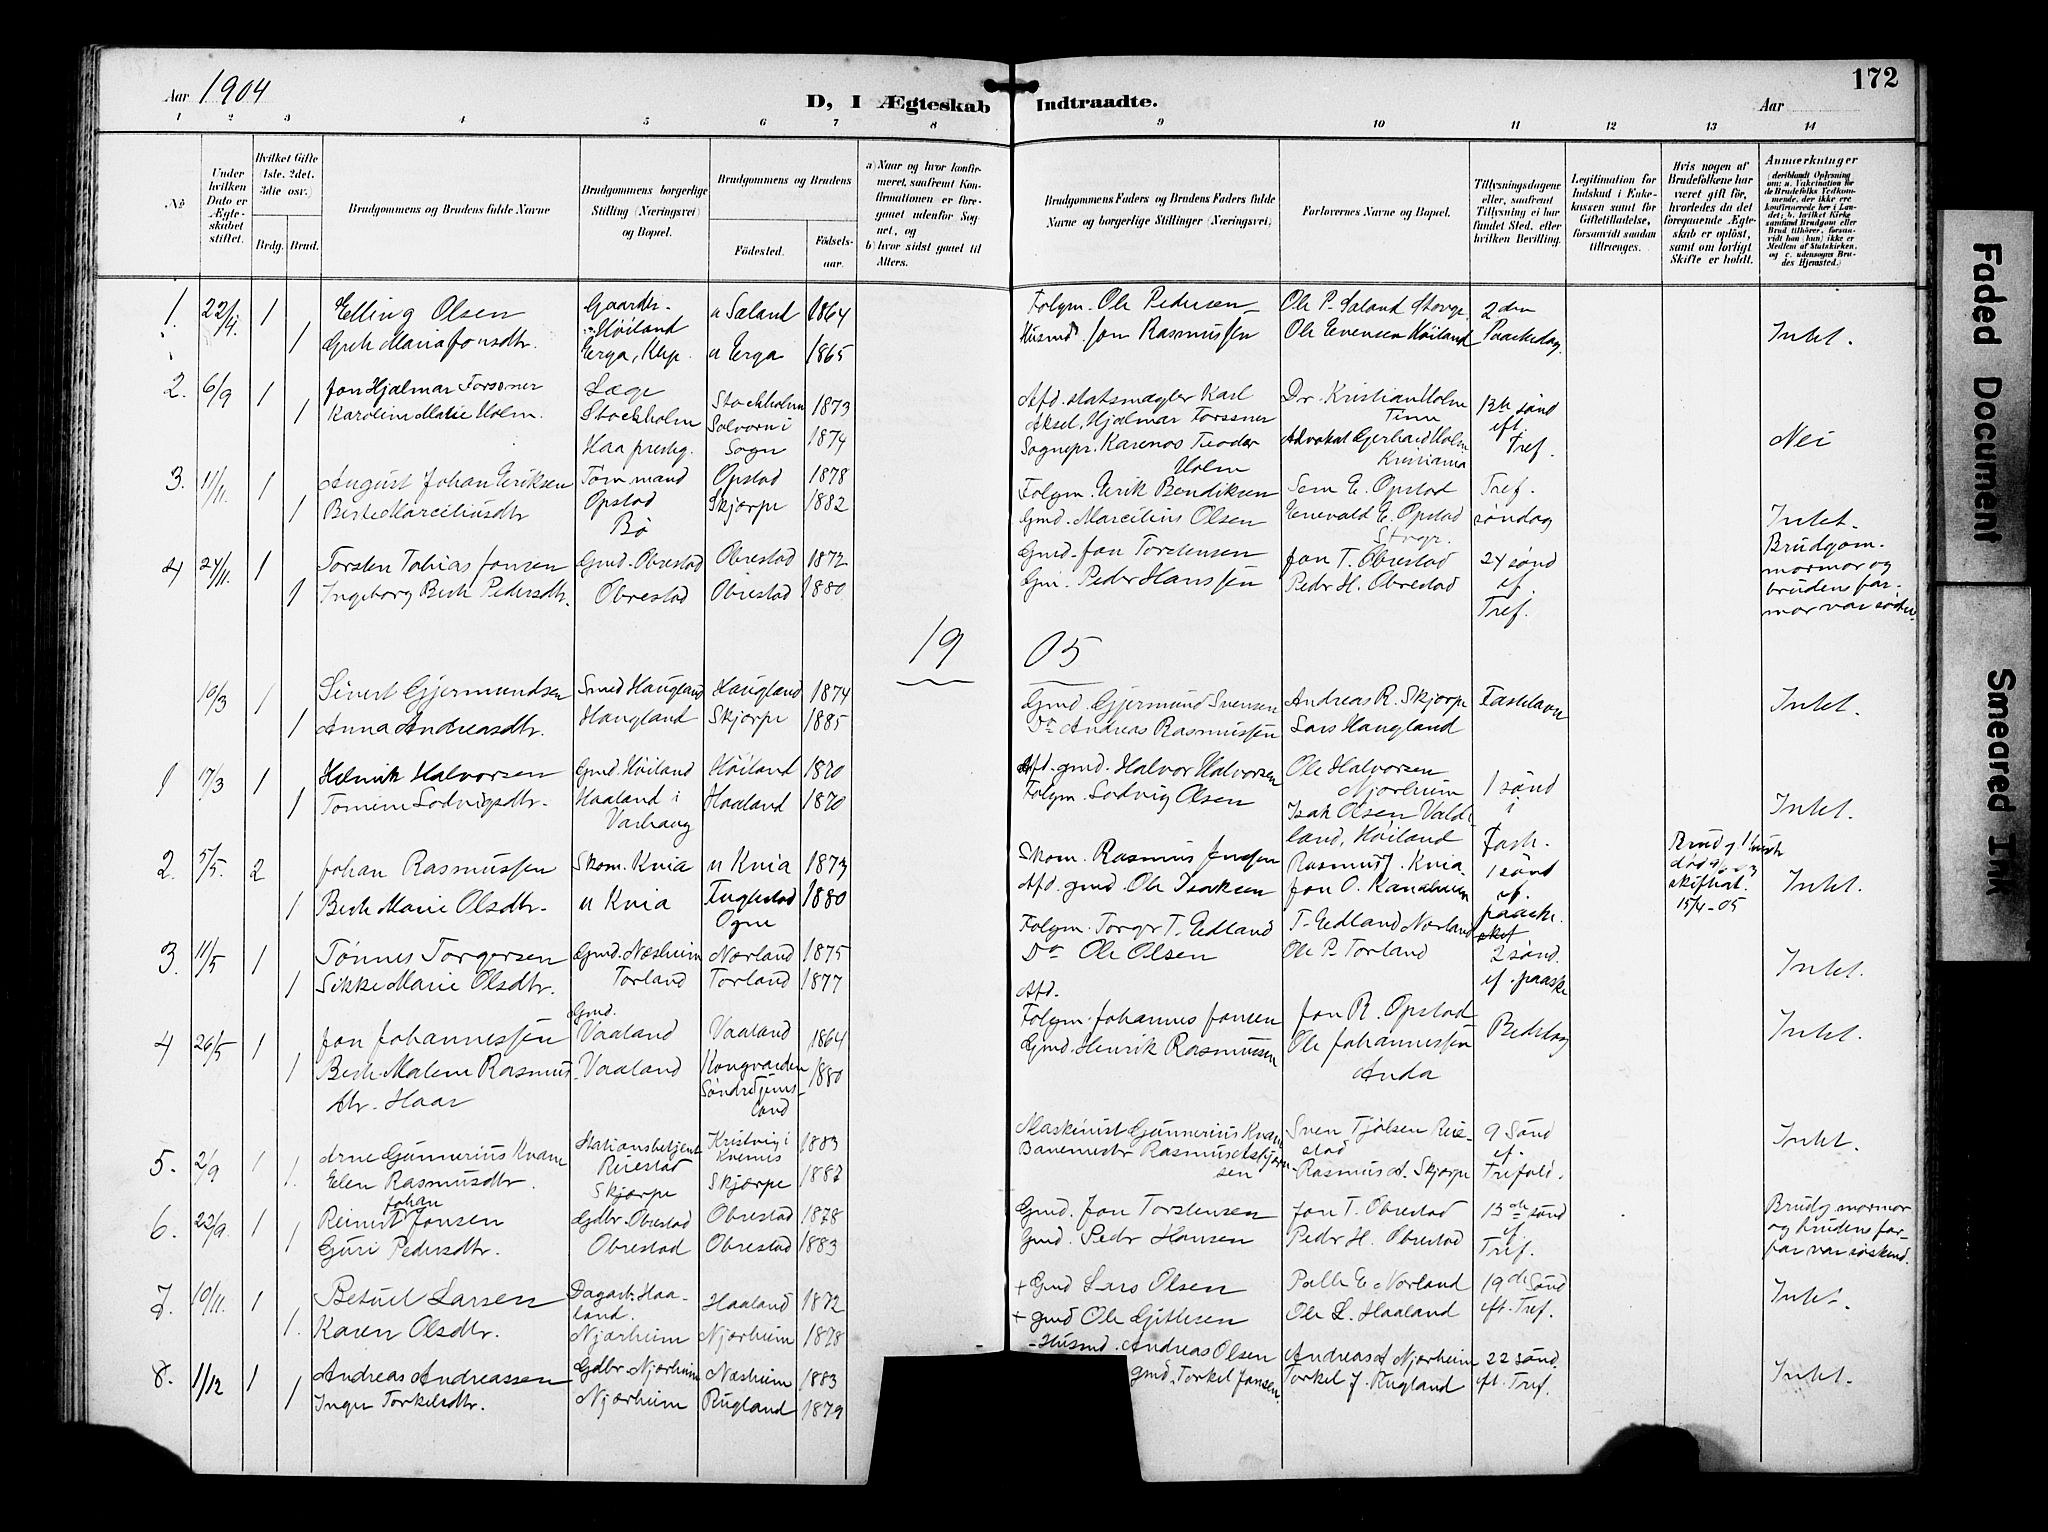 Aar 1904
D, I Ægteskab Indtraadte.
172
Aar
1 2 3 4 5 6 7 8 9 10 11 12 13 14
No
Under hvilken Dato er Ægteskabet stiftet.
Hvilket Gifte (1ste, 2det, 3die osv.)
Brdg. Brud.
Brudgommens og Brudens fulde Navne
Brudgommens borgerlige Stilling (Næringsvei) og Bopæl.
Brudgommens og Brudens
Fødested. Fødselsaar.
a) Naar og hvor konfirmeret, saafremt Konfirmationen er foregaaet udenfor Sognet, og
b) hvor sidst gaaet til Alters.
Brudgommens Faders og Brudens Faders fulde Navne og borgerlige Stillinger (Næringsvei).
Forlovernes Navne og Bopæl.
Tillysningsdagene eller, saafremt Tillysning ei har fundet Sted, efter hvilken Bevilling.
Legitimation for Indskud i Enkekassen samt for Giftetilladelse, forsaavidt saadan tiltrænges.
Hvis nogen af Brudefolkene har været gift før, hvorledes da det foregaaende Ægteskab er opløst, samt om lovligt Skifte er holdt.
Anmerkninger (deriblandt Oplysning om: a. Vakcination for de Brudefolks Vedkommende, der ikke ere konfirmerede her i Landet; b. hvilket Kirkesamfund Brudgom eller Brud tilhører, forsaavidt han (hun) ikke er Medlem af Statskirken, og c. udensogns Brudes Hjemsted.)
1. 22/4. 1 Elling Olsen Gaardbr. Høiland u Saland 1864 Folgm. Ole Pedersen Ole P. Saland Stavgr. 2den
1 Greth Maria Jonsdtr. Erga, Klep. u Erga 1865 Husmd Jon Rasmussen Ole Evensen Høiland Paaskedag. Intet.
2. 6/9 1 Jon Hjalmar Forssner Læge Stockholm 1873 Afd. statsmægler Karl Dr. Kristian Holm 13te sønd
1 Karoline Marie Holm. Stockholm Solvorn i 1874 Aksel, Hjalmar Forssner Time eft.
Haa prestg. Sogn Sognepr. Karenos Teodor Advokat Gerhard Holm Tref. Nei
Holm Kristiania
3. 11/11. 1 August Johan Eriksen Tømmand Opstad 1878 Folgm. Erik Bendiksen Sem E. Opstad Tref.
1 Berte Marciliusdtr Opstad Skjærpe 1882 Gmd. Marcilius Olsen Enevald E. Opstad søndag Intet.
Bø Stvgr.
4 24/11. 1 Torsten Tobias Jonsen Gmd. Obrestad Obrestad 1872 Gmd. Jon Torstensen Jon T. Obrestad 24 sønd Brudgom. mormor og
1 Ingeborg Berth Pedersdtr. Obrestad Obrestad 1880 Gm. Peder Hanssen Peder H. Obrestad ef. brudens farmor var søstre.
Tref.
19 05
10/3 1 Sivert Gjermundsen Smed Haugland Haugland 1874 Gmd. Gjermund Svensen Andreas R. Skjærpe Fastelavn Intet.
1 Anna Andreasdtr. Haugland Skjærpe 1885 Do Andreas Rasmussen Lars Haugland
1 17/3 1 Henrik Halvorsen Gmd. Høiland Høiland 1870 Afd. gmd. Halvor Halvorsen Ole Halvorsen
1 Tomine Lodvigsdtr. Haaland i Haaland 1870 Folgm. Lodvig Olsen Njærheim 1 sønd Intet.
Varhaug Isak Olsen Vald- i
land, Høiland Fast.
2. 5/5. 2 Johan Rasmussen Skom. Kvia u Kvia 1873 Skom. Rasmus Jensen Rasmus J. Kvia 1 sønd Intet.
1 Berte Marie Olsdtr. u Kvia Fuglestad 1880 Afd. gmd. Ole Isaksen Jon O. ef. skiftat. 15/4-05
Ogne paaske.
3. 11/5 1 Tønnes Torgersen Gmd. Næsheim Nærland 1875 Folgm. Torger T. Edland T. Edland Nærland 2 sønd. Intet.
1 Sikke Marie Olsdtr. Torland Torland 1877 Do Ole Olsen Ole P. Torland ef. paaske
4 26/5 1 Jon Johannessen Gmd. Vaaland Vaaland 1864 Afd. Folgm. Johannes Jonsen Jon R. Opstad Bededag Intet.
1 Berte Malene Rasmus- Vaaland Kongvarden 1880 Gmd. Henrik Rasmussen Ole Johannessen
dtr. Haar Anda
5. 2/9 1 Arne Gunnerius Kvam Stationsbetjent Kristvig i Kvernes 1883 Maskinist Gunnerius Kvam Sven Tjølsen Reie- 9 sønd Intet.
1. Elen Rasmusdtr. Reiestad Skjærpe Skjærpe 1882 Banemestr Rasmus Asbjørnsen stad Rasmus A. Skjærpe ef. Trefold.
6. 22/9. 1 Reinert Johan Jonsen Gdbr. Obrestad Obrestad 1878 Gmd. Jon Torstensen Jon T. Obrestad 13de sønd Brudg. mormor
1 Guri Pedersdtr. Obrestad Obrestad 1883 Gmd. Peder Hansen Peder H. Obrestad ef. Tref. og brudens farfar var søskend.
7. 10/11. 1 Betuel Larsen Dagarb. Haaland. Haaland 1872 + Gmd Lars Olsen Palle E. Nærland 19de sønd Intet.
1. Karen Olsdtr. Njærheim Njærheim 1878 + gmd Ole Gitlesen Ole L. Haaland eft. Tref.
8. 1/12 1 Andreas Andreassen Gdbr. Njærheim Næsheim 1883 Husmd. Andreas Olsen Andreas A Njærheim 22 sønd. Intet.
1 Inger Torkelsdtr. Njærheim Rugland 1879 gmd. Torkel Jonsen. Torkel J. Rugland eft. Tref.
Faded Document
Smeared Ink